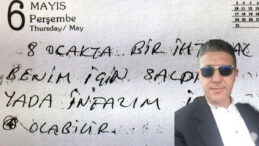 6
MAYIS
Perşembe
Thursday/ May
8 OCAKTA BİR
BENİM İÇİN
YADA İNFAZIM
OLABİLİR.